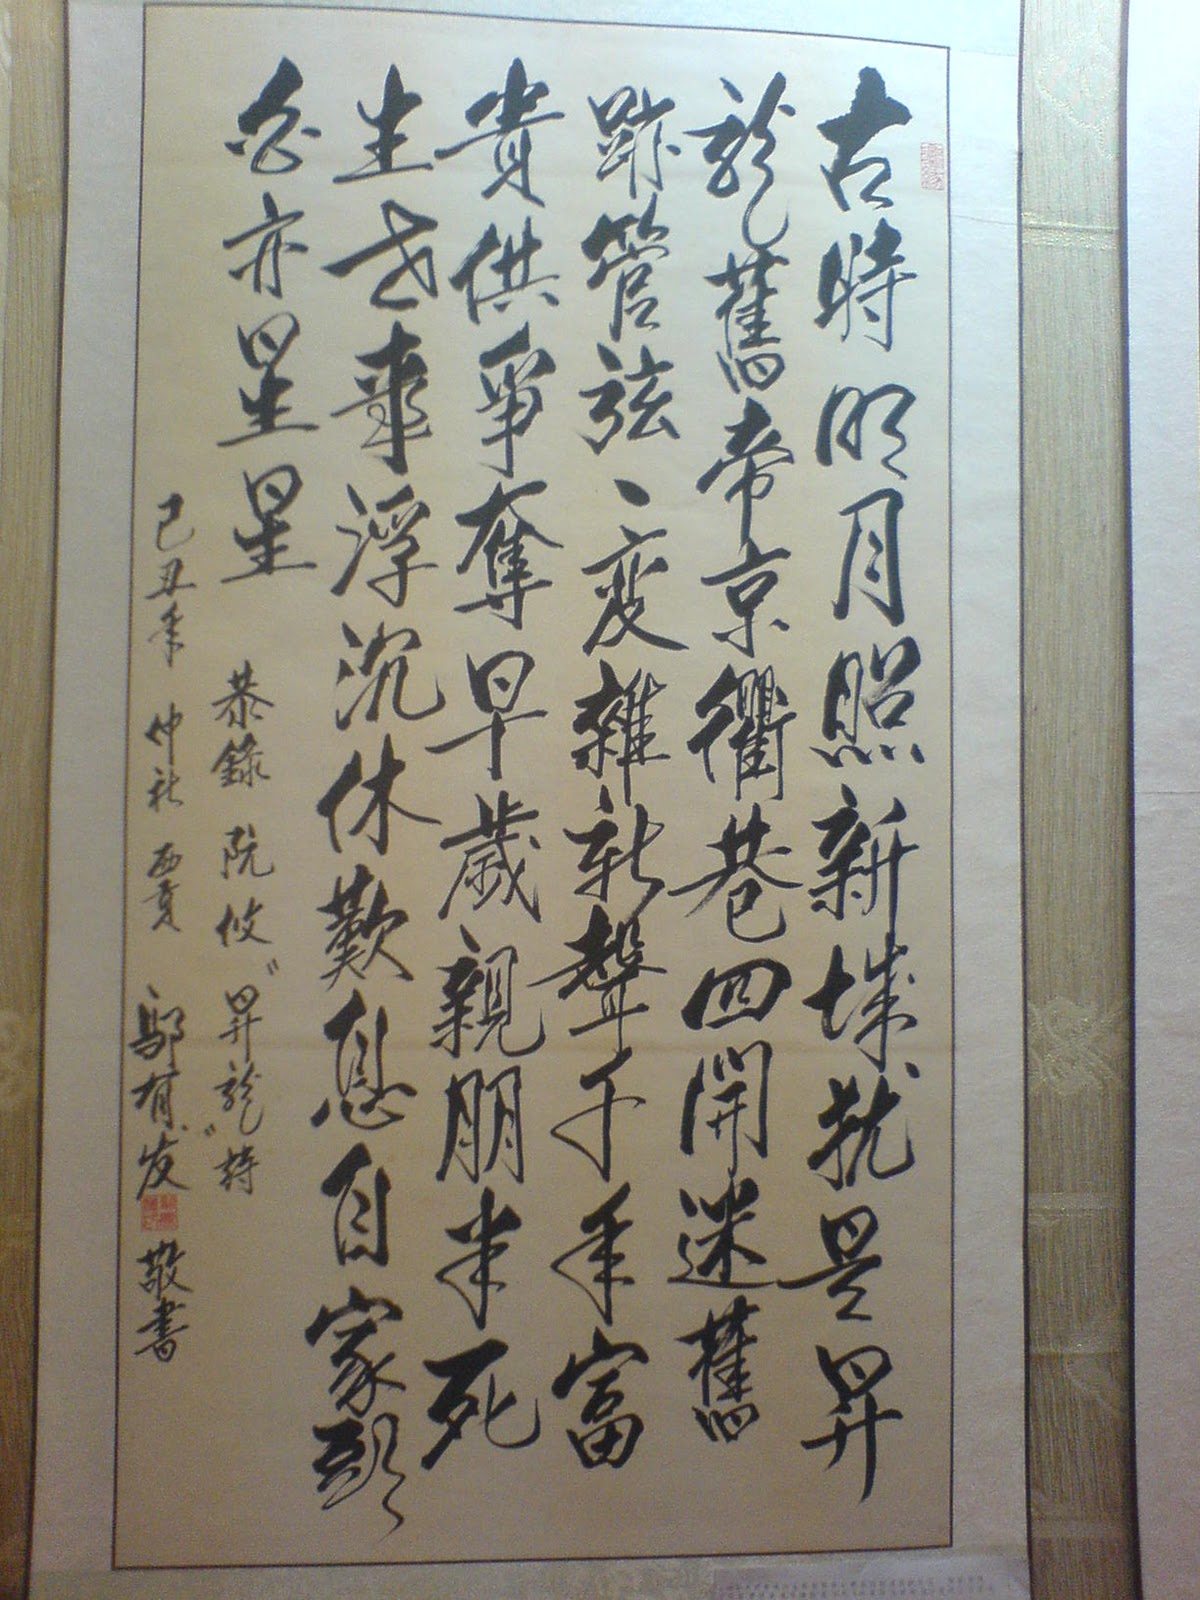 古時明月照新城扰是昇
龍舊帝京衢巷四開迷舊
跡管弦一変雜新聲千年富
貴供爭奪早歲親朋半死
生世事浮沉休歎息自家頭
白亦星星
恭錄阮攸〝昇龍〞詩
己丑年仲社賈鄔有发敬書